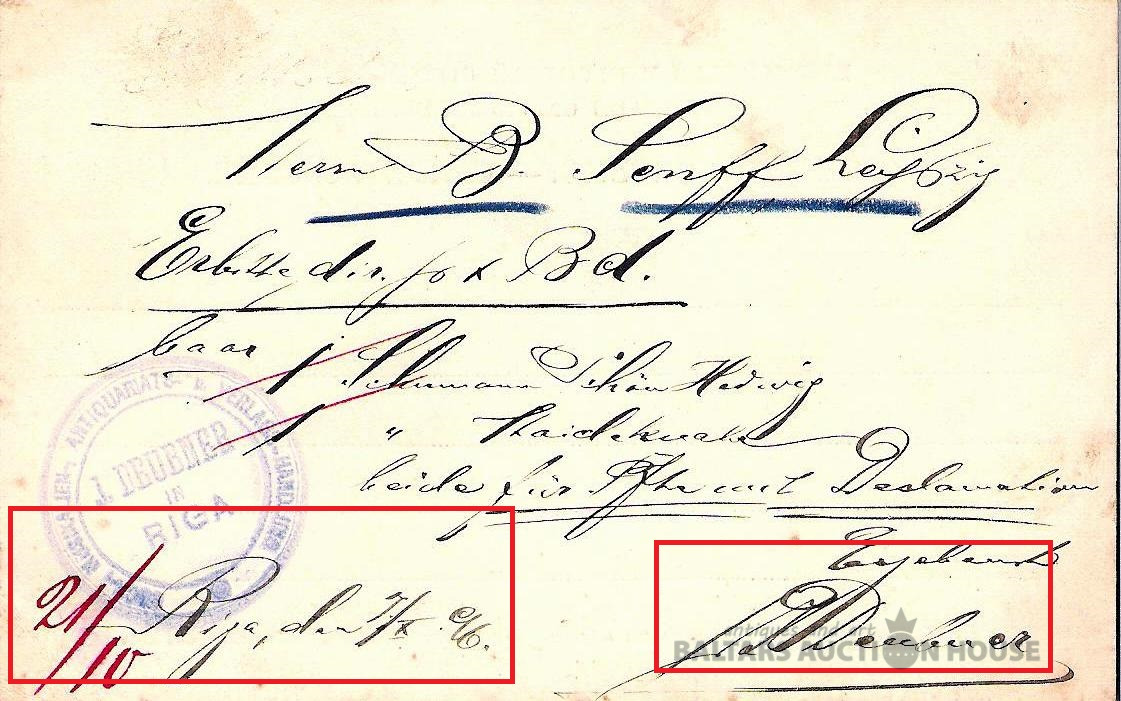 Herrn B. Senff Leipzig
Erbitte dir. pr x Bd.
baar 1 Schumann Schön Hedwig
1 " Haideknabe
beide für Pfte mit Declamation
Ergebenst
21/10 Riga, den 7/X 96.
J. Deubner
MUSIKALIEN-, ANTIQUARIATS- & VERLAGS-HANDLUNG
J. DEUBNER
IN
RIGA
antiques and art
BALTARS AUCTION HOUSE